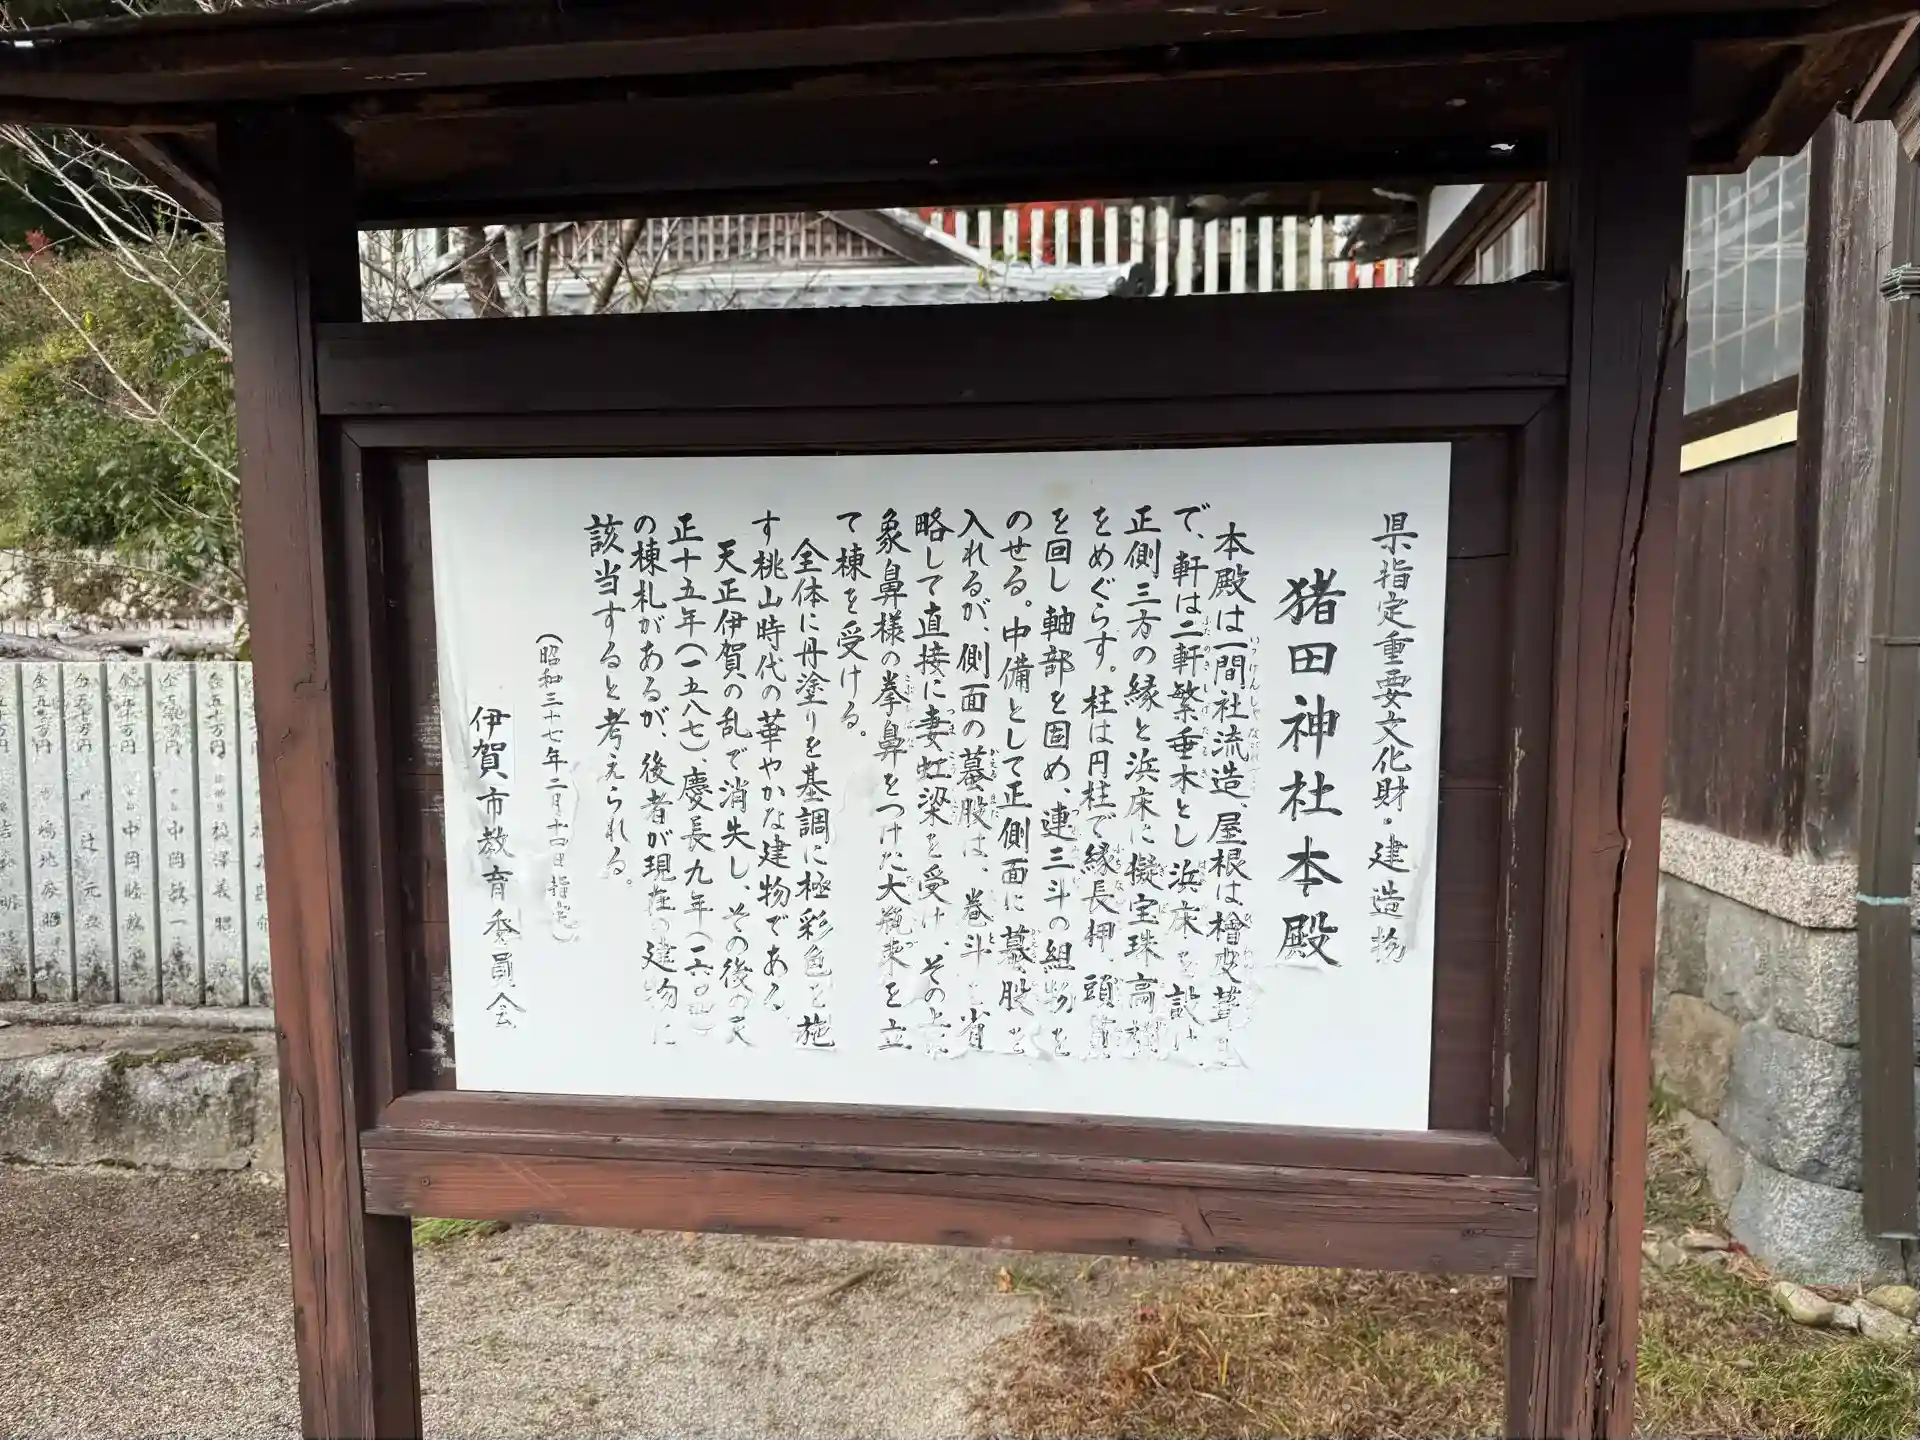 県指定重要文化財・建造物
猪田神社本殿
本殿は一間社流造、屋根は檜皮葺
で、軒は二軒繁垂木とし浜床を設け
正側三方の縁と浜床に擬宝珠高欄
をめぐらす。柱は円柱で縁長押、頭貫
を回し軸部を固め、連三斗の組物を
のせる。中備として正側面に蟇股を
入れるが、側面の蟇股は、巻斗を省
略して直接に妻虹梁を受け、その上に
象鼻様の拳鼻をつけた大瓶束を立
て棟を受ける。
全体に丹塗りを基調に極彩色を施
す桃山時代の華やかな建物である。
天正伊賀の乱で消失し、その後の天
正十五年(一五八七)、慶長九年(一六〇四)
の棟札があるが、後者が現在の建物に
該当すると考えられる。
(昭和三十七年二月十四日指定)
伊賀市教育委員会